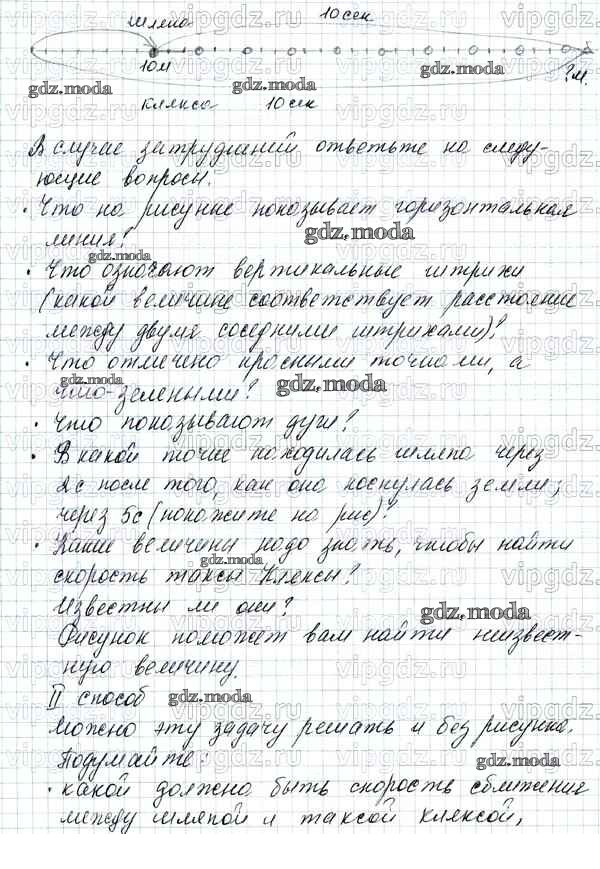 шляпа 10 сек
10м
?м.
клякса 10 сек
В случае затруднений ответьте на следу-
ющие вопросы.
· Что на рисунке показывает горизонтальная
линия?
· Что означают вертикальные штрихи
(какой величине соответствует расстояние
между двумя соседними штрихами)?
· Что отмечено красными точками, а
что-зелеными?
· Что показывают дуги?
· В какой точке находилась шляпа через
2с после того, как она коснулась земли;
через 5с (покажите на рис)?
· Какие величины надо знать, чтобы найти
скорость таксы Кляксы?
Известны ли они?
Рисунок поможет вам найти неизвест-
ную величину.
II способ
Можно эту задачу решать и без рисунка.
Подумайте:
· какой должно быть скорость сближения
между шляпой и таксой кляксой,
gdz.moda
vipgdz.ru